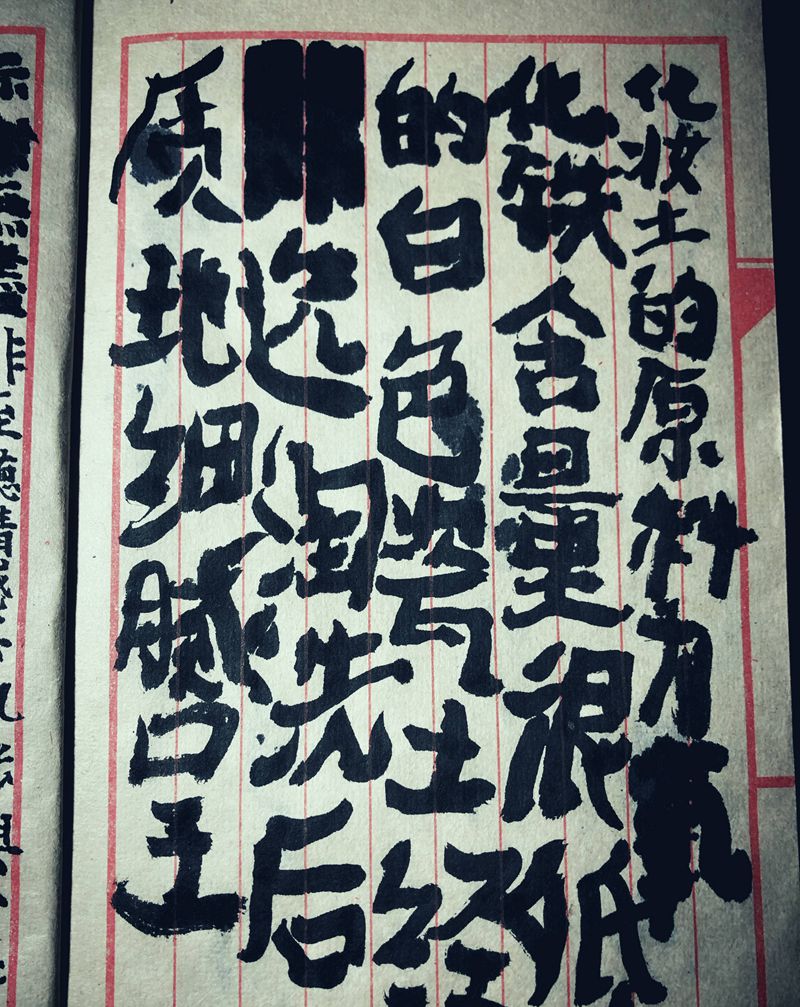 化妆土的原料为氧
化铁含量很低
的白色瓷土经
选淘洗后
质地细腻呈